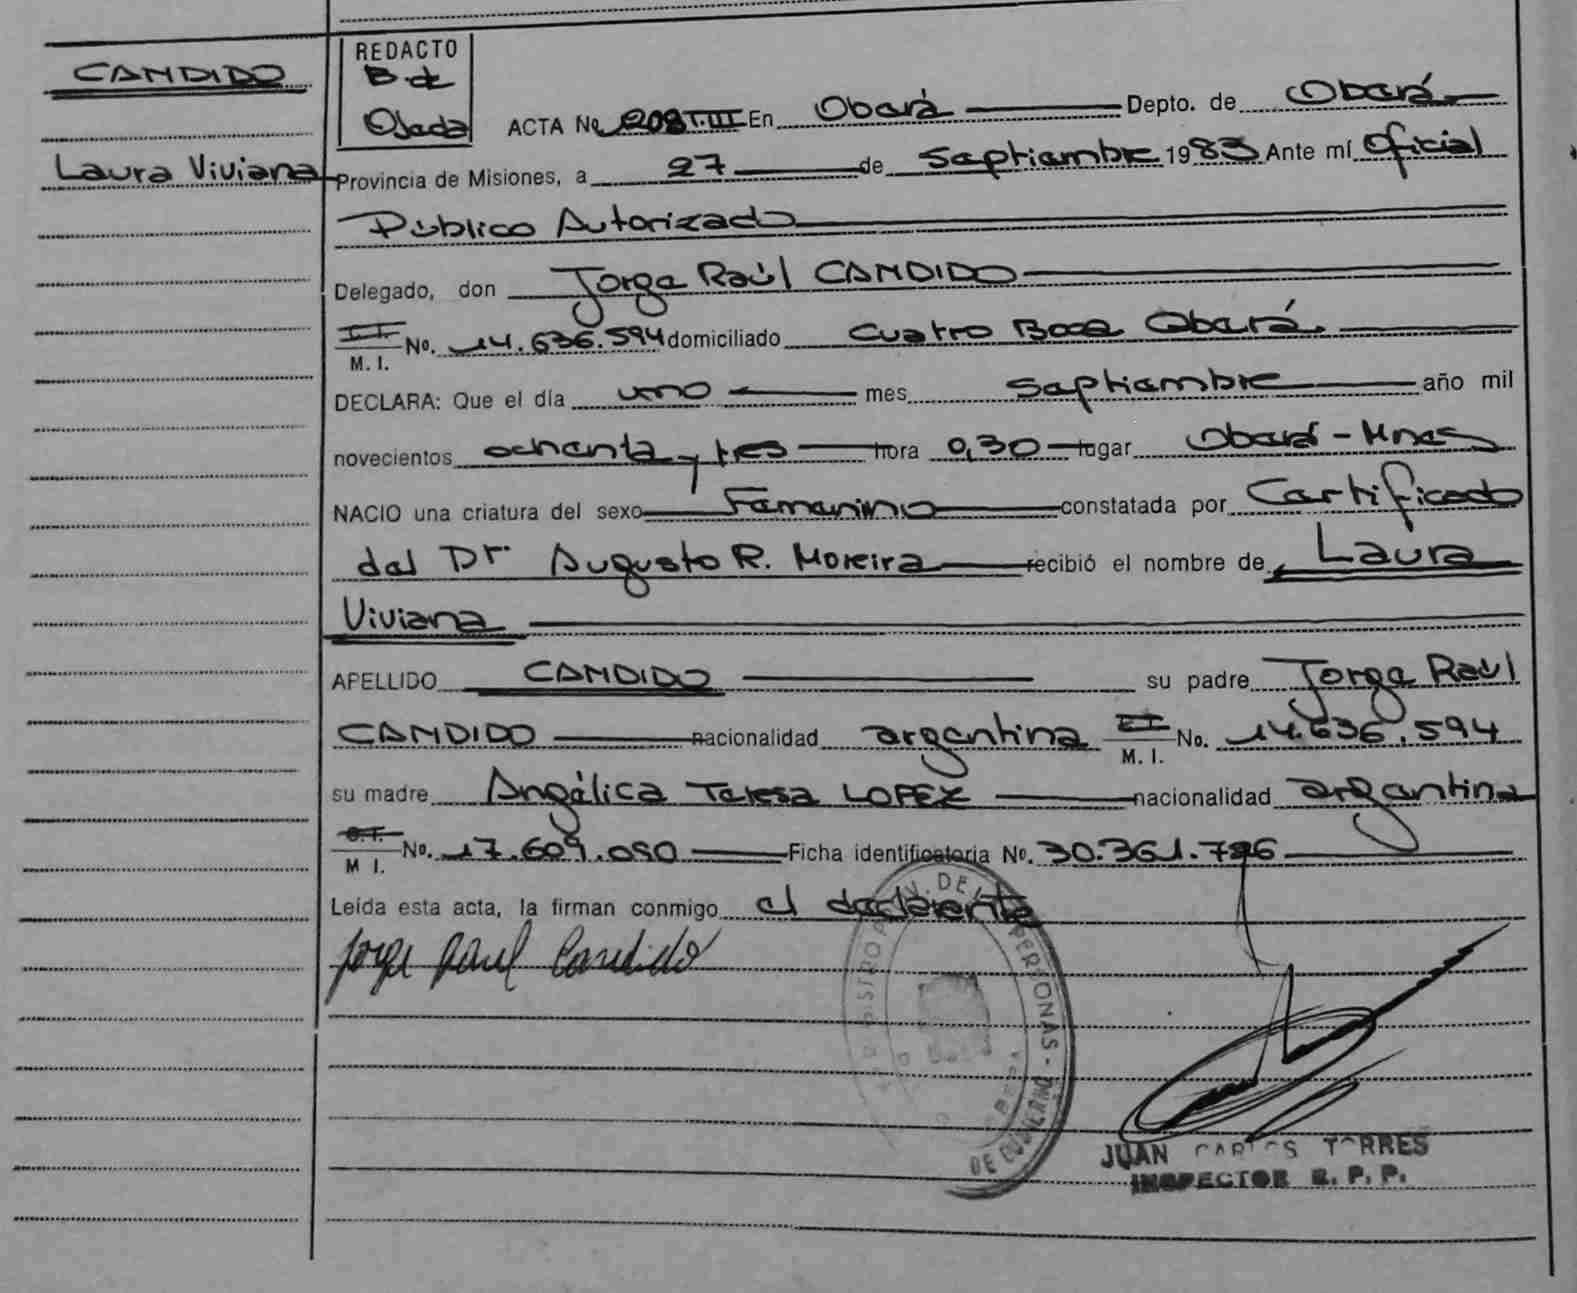 CANDIDO
Laura Viviana
REDACTO
B. de
Ojeda
ACTA No 208 T.III En Oberá Depto. de Oberá
Provincia de Misiones, a 27 de Septiembre 1983 Ante mí Oficial
Público Autorizado
Delegado, don Jorge Raúl CANDIDO
M. I. No. 14.636.594 domiciliado Cuatro Boca Oberá.
DECLARA: Que el día uno mes Septiembre año mil
novecientos ochenta y tres hora 0,30 lugar Oberá - Mnes
NACIO una criatura del sexo Femenino constatada por Certificado
del Dr. Augusto R. Moreira recibió el nombre de Laura
Viviana
APELLIDO CANDIDO su padre Jorge Raúl
CANDIDO nacionalidad argentina M. I. No. 14.636.594
su madre Angélica Teresa LOPEZ nacionalidad argentina
M I. No. 17.609.090 Ficha identificatoria No. 30.361.796
Leída esta acta, la firman conmigo el declarante
Jorge Raul Candido
PERSONAS
JUAN CARLOS TORRES
INSPECTOR R. P. P.